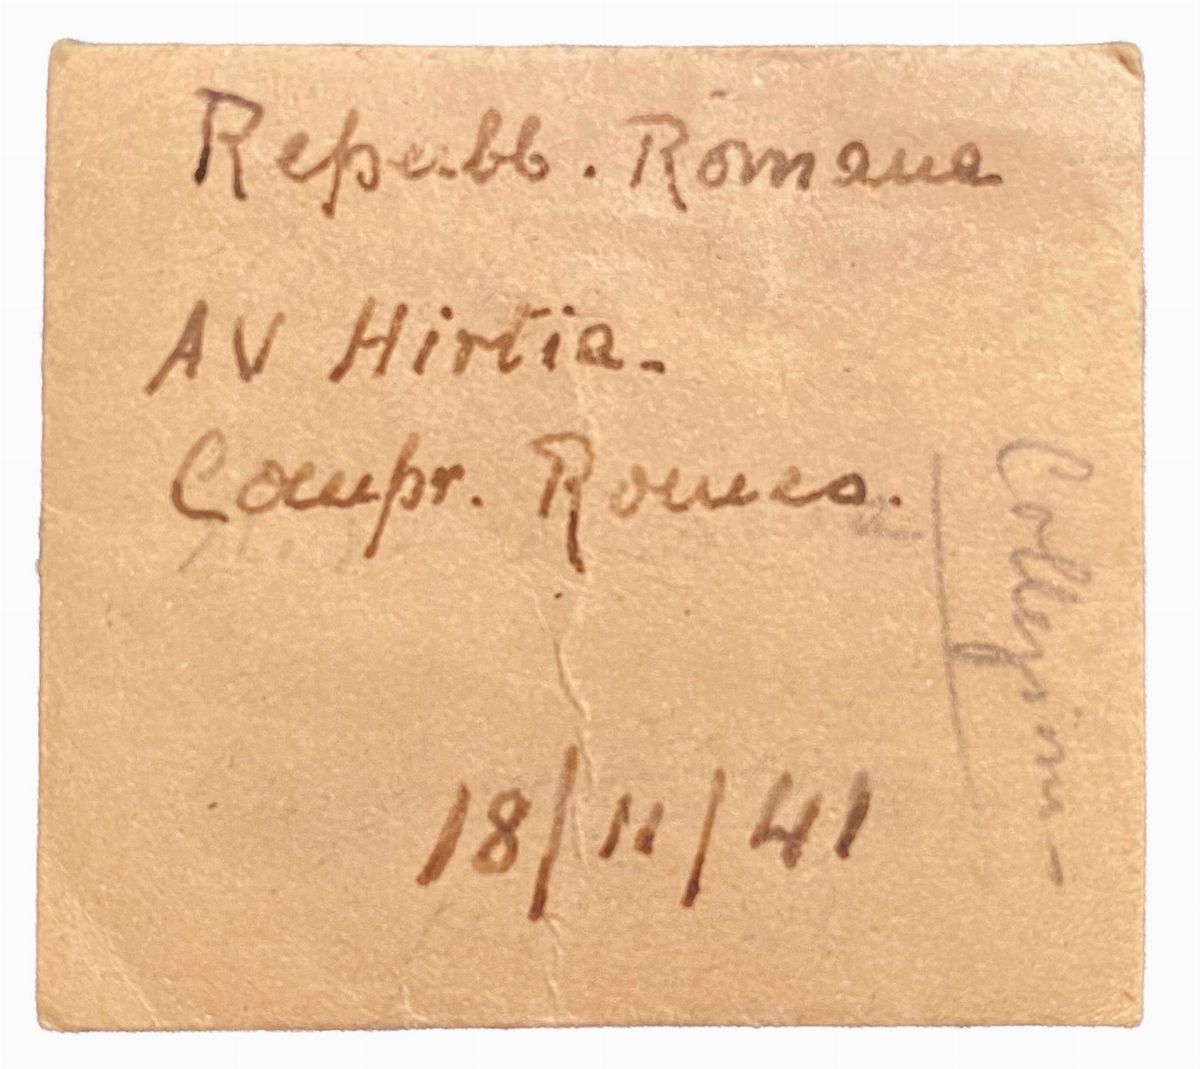 Repubb. Romana
AV Hirtia.
Compr.
18/11/41